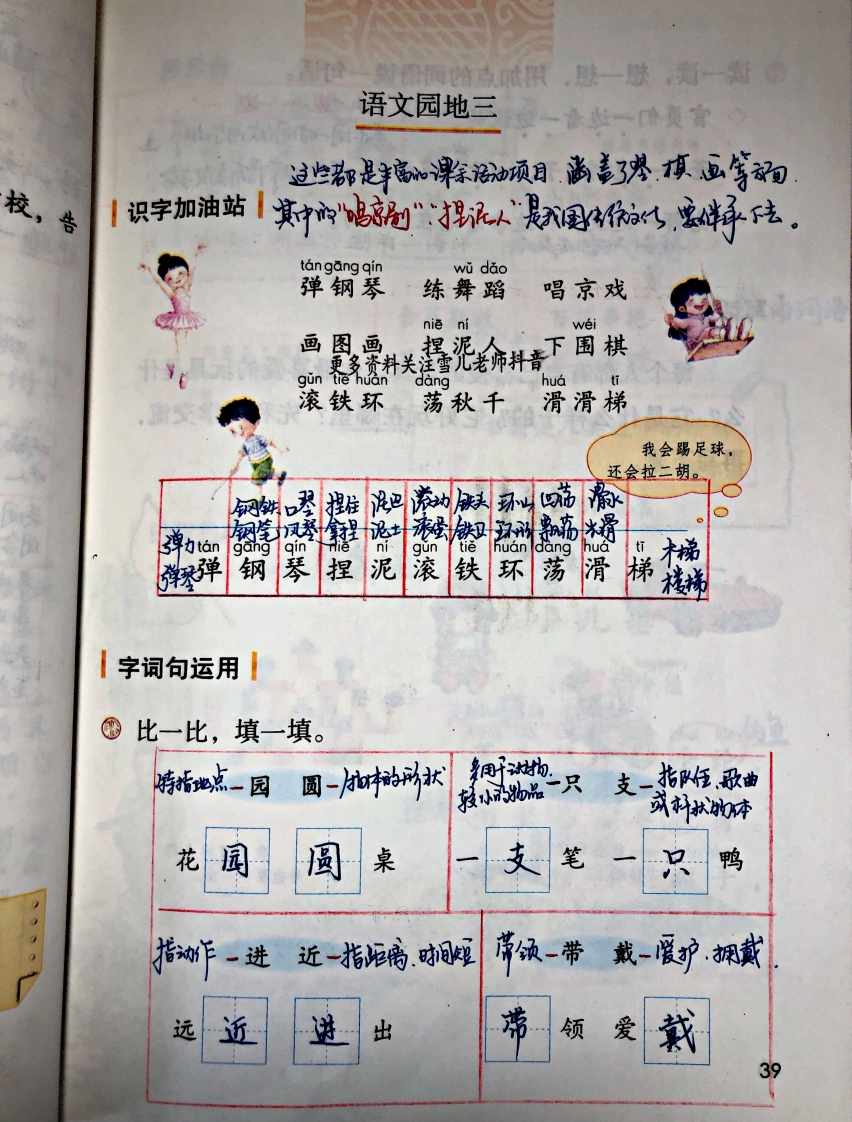 语文园地三
这些都是丰富的课余活动项目 涵盖了琴、棋、画等方面
校，告
识字加油站
其中的“唱京剧”“捏泥人”是我国传统文化，要传承下去。
tán gāng qín wǔ dǎo
弹钢琴 练舞蹈 唱京戏
niē ní wéi
画图画 捏泥人 下围棋
更多资料关注雪儿老师抖音
gǔn tiě huán dàng huá tī
滚铁环 荡秋千 滑滑梯
我会踢足球，
还会拉二胡。
钢铁 口琴 捏住 泥巴 滚动 铁头 环山 回荡 滑冰
钢笔 风琴 拿捏 泥土 滚蛋 铁卫 环形 飘荡 水滑
弹力 木梯
tán gāng qín niē ní gǔn tiě huán dàng huá tī
弹琴 弹 钢 琴 捏 泥 滚 铁 环 荡 滑 梯 楼梯
字词句运用
比一比，填一填。
特指地点-园 圆-物体的形状
多用于动物、
较小的物品-只 支-指队伍、歌曲
或杆状物体
花园 圆桌 一支笔 一只鸭
指动作-进 近-指距离、时间短
带领-带 戴-爱护、拥戴
远近 进出 带领 爱戴
39